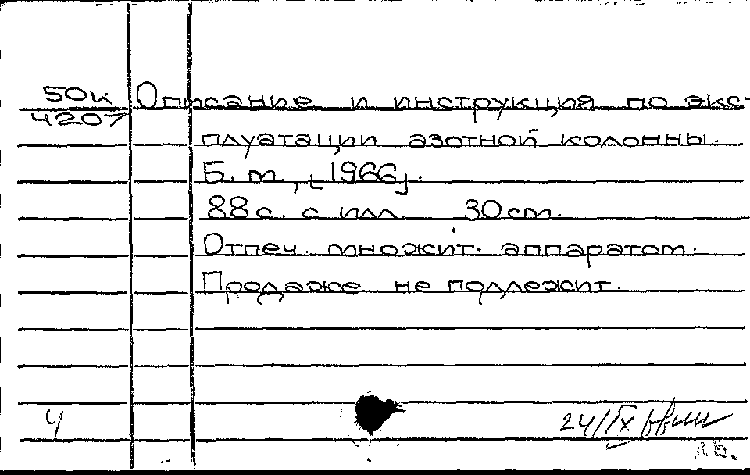 50к Описание и инструкция по экс-
4207
плуатации азотной колонны.
Б. m., [1966].
88 с. с илл. 30 cm.
Отпеч. множит. аппаратом.
Продаже не подлежит.
Ч
24/IX